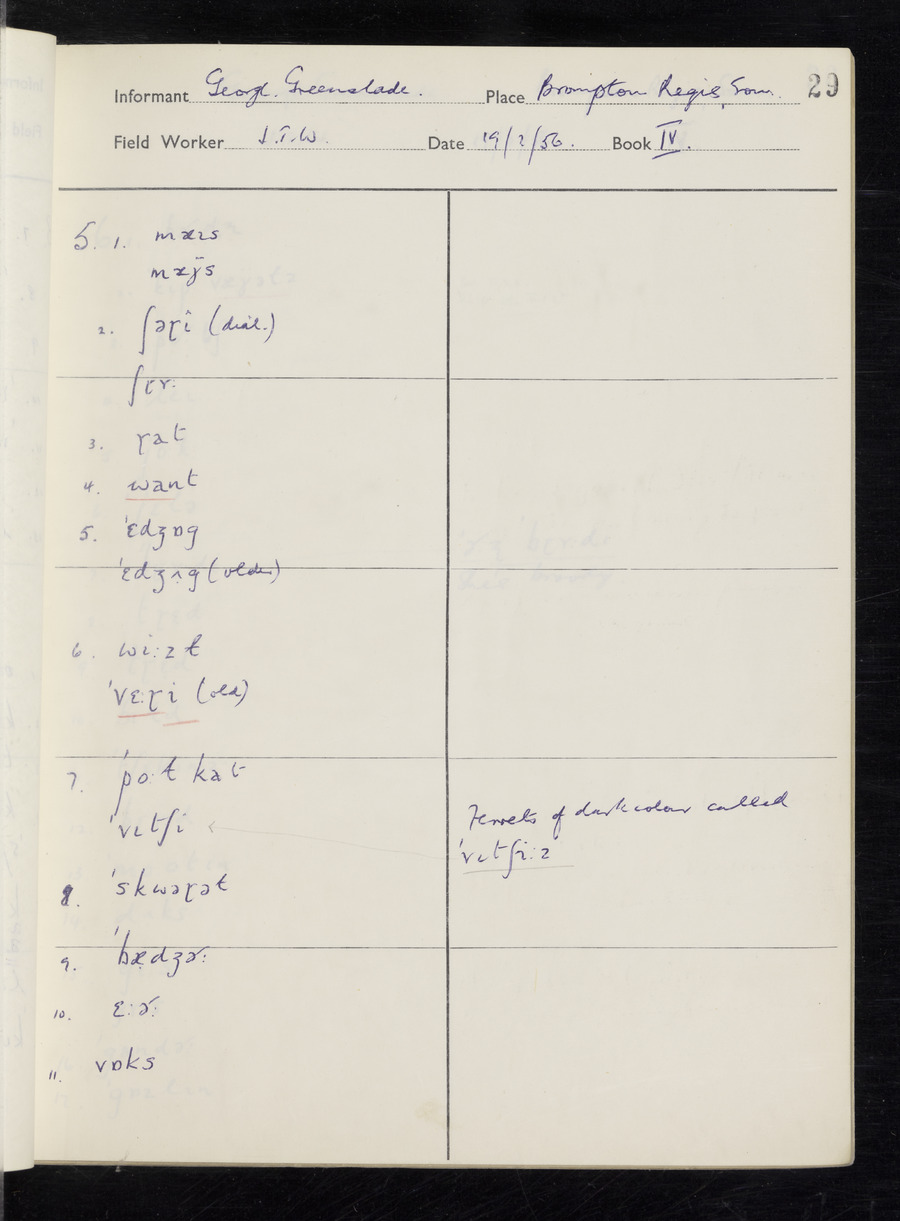 Informant Georg. Greenslade. Place Brompton Regis, Som. 29
Field Worker J.T.W. Date 19/2/56. Book IV.
5. 1. mæɪs
mæj̈s
2. ʃəɽî (dial.)
ʃɽɤ:
3. ɽat
4. want
5. 'ɛdʒɒg
'ɛdʒɪg (older)
6. wi:zɫ
'vɛ:ɽi (old)
7. 'po:ɫ kat
'vɪtʃi
Ferrets of dark colour called
'vɪtʃi:z
8. 'skwəɽəɫ
9. 'bædʒɚ:
10. ɛ:ɚ:
11. vɒks